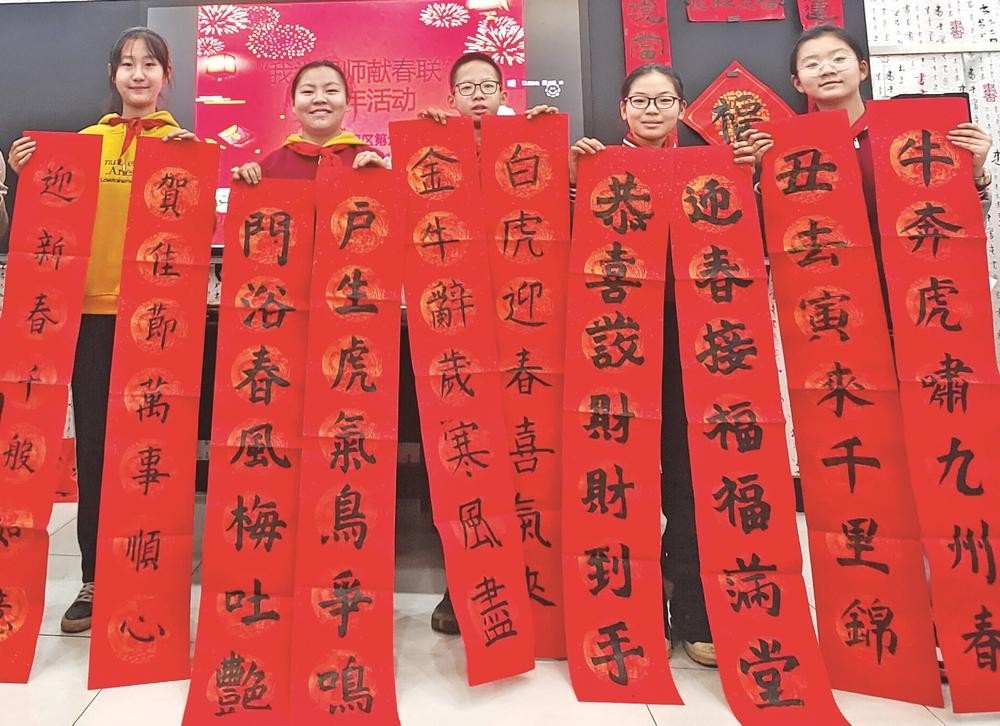 “我 师献春联”
年活动
区第
福
迎新春千般如意
賀佳節萬事順心
門浴春風梅吐艷
戶生虎氣鳥爭鳴
金牛辭歲寒風盡
白虎迎春喜氣來
恭喜發財財到手
迎春接福福滿堂
丑去寅來千里錦
牛奔虎嘯九州春